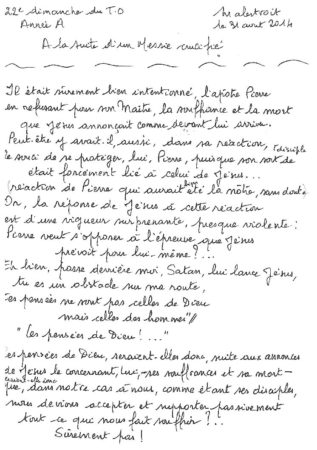 22e dimanche du T.O
Année A
le 31 août 2014
A la suite d'un Messie crucifié
Il était sûrement bien intentionné, l'apôtre Pierre
en refusant pour son Maître, la souffrance et la mort
que Jésus annonçait comme devant lui arriver.
Peut-être y avait-il, aussi, dans sa réaction,
le souci de se protéger, lui, Pierre, puisque son sort de disciple
était forcément lié à celui de Jésus...
(réaction de Pierre qui aurait été la nôtre, sans doute)
Or, la réponse de Jésus à cette réaction
est d'une vigueur surprenante, presque violente:
Pierre veut s'opposer à l'épreuve que Jésus
prévoit pour lui-même?...
Eh bien, passe derrière moi, Satan, lui lance Jésus,
tu es un obstacle sur ma route,
tes pensées ne sont pas celles de Dieu
mais celles des hommes"//
"Les pensées de Dieu!..."
Les pensées de Dieu, seraient-elles donc, suite aux annonces
de Jésus le concernant, lui, - ses souffrances et sa mort -
seraient-elles donc
que, dans notre cas à nous, comme étant ses disciples,
nous devions accepter et supporter passivement
tout ce qui nous fait souffrir?...
Sûrement pas!